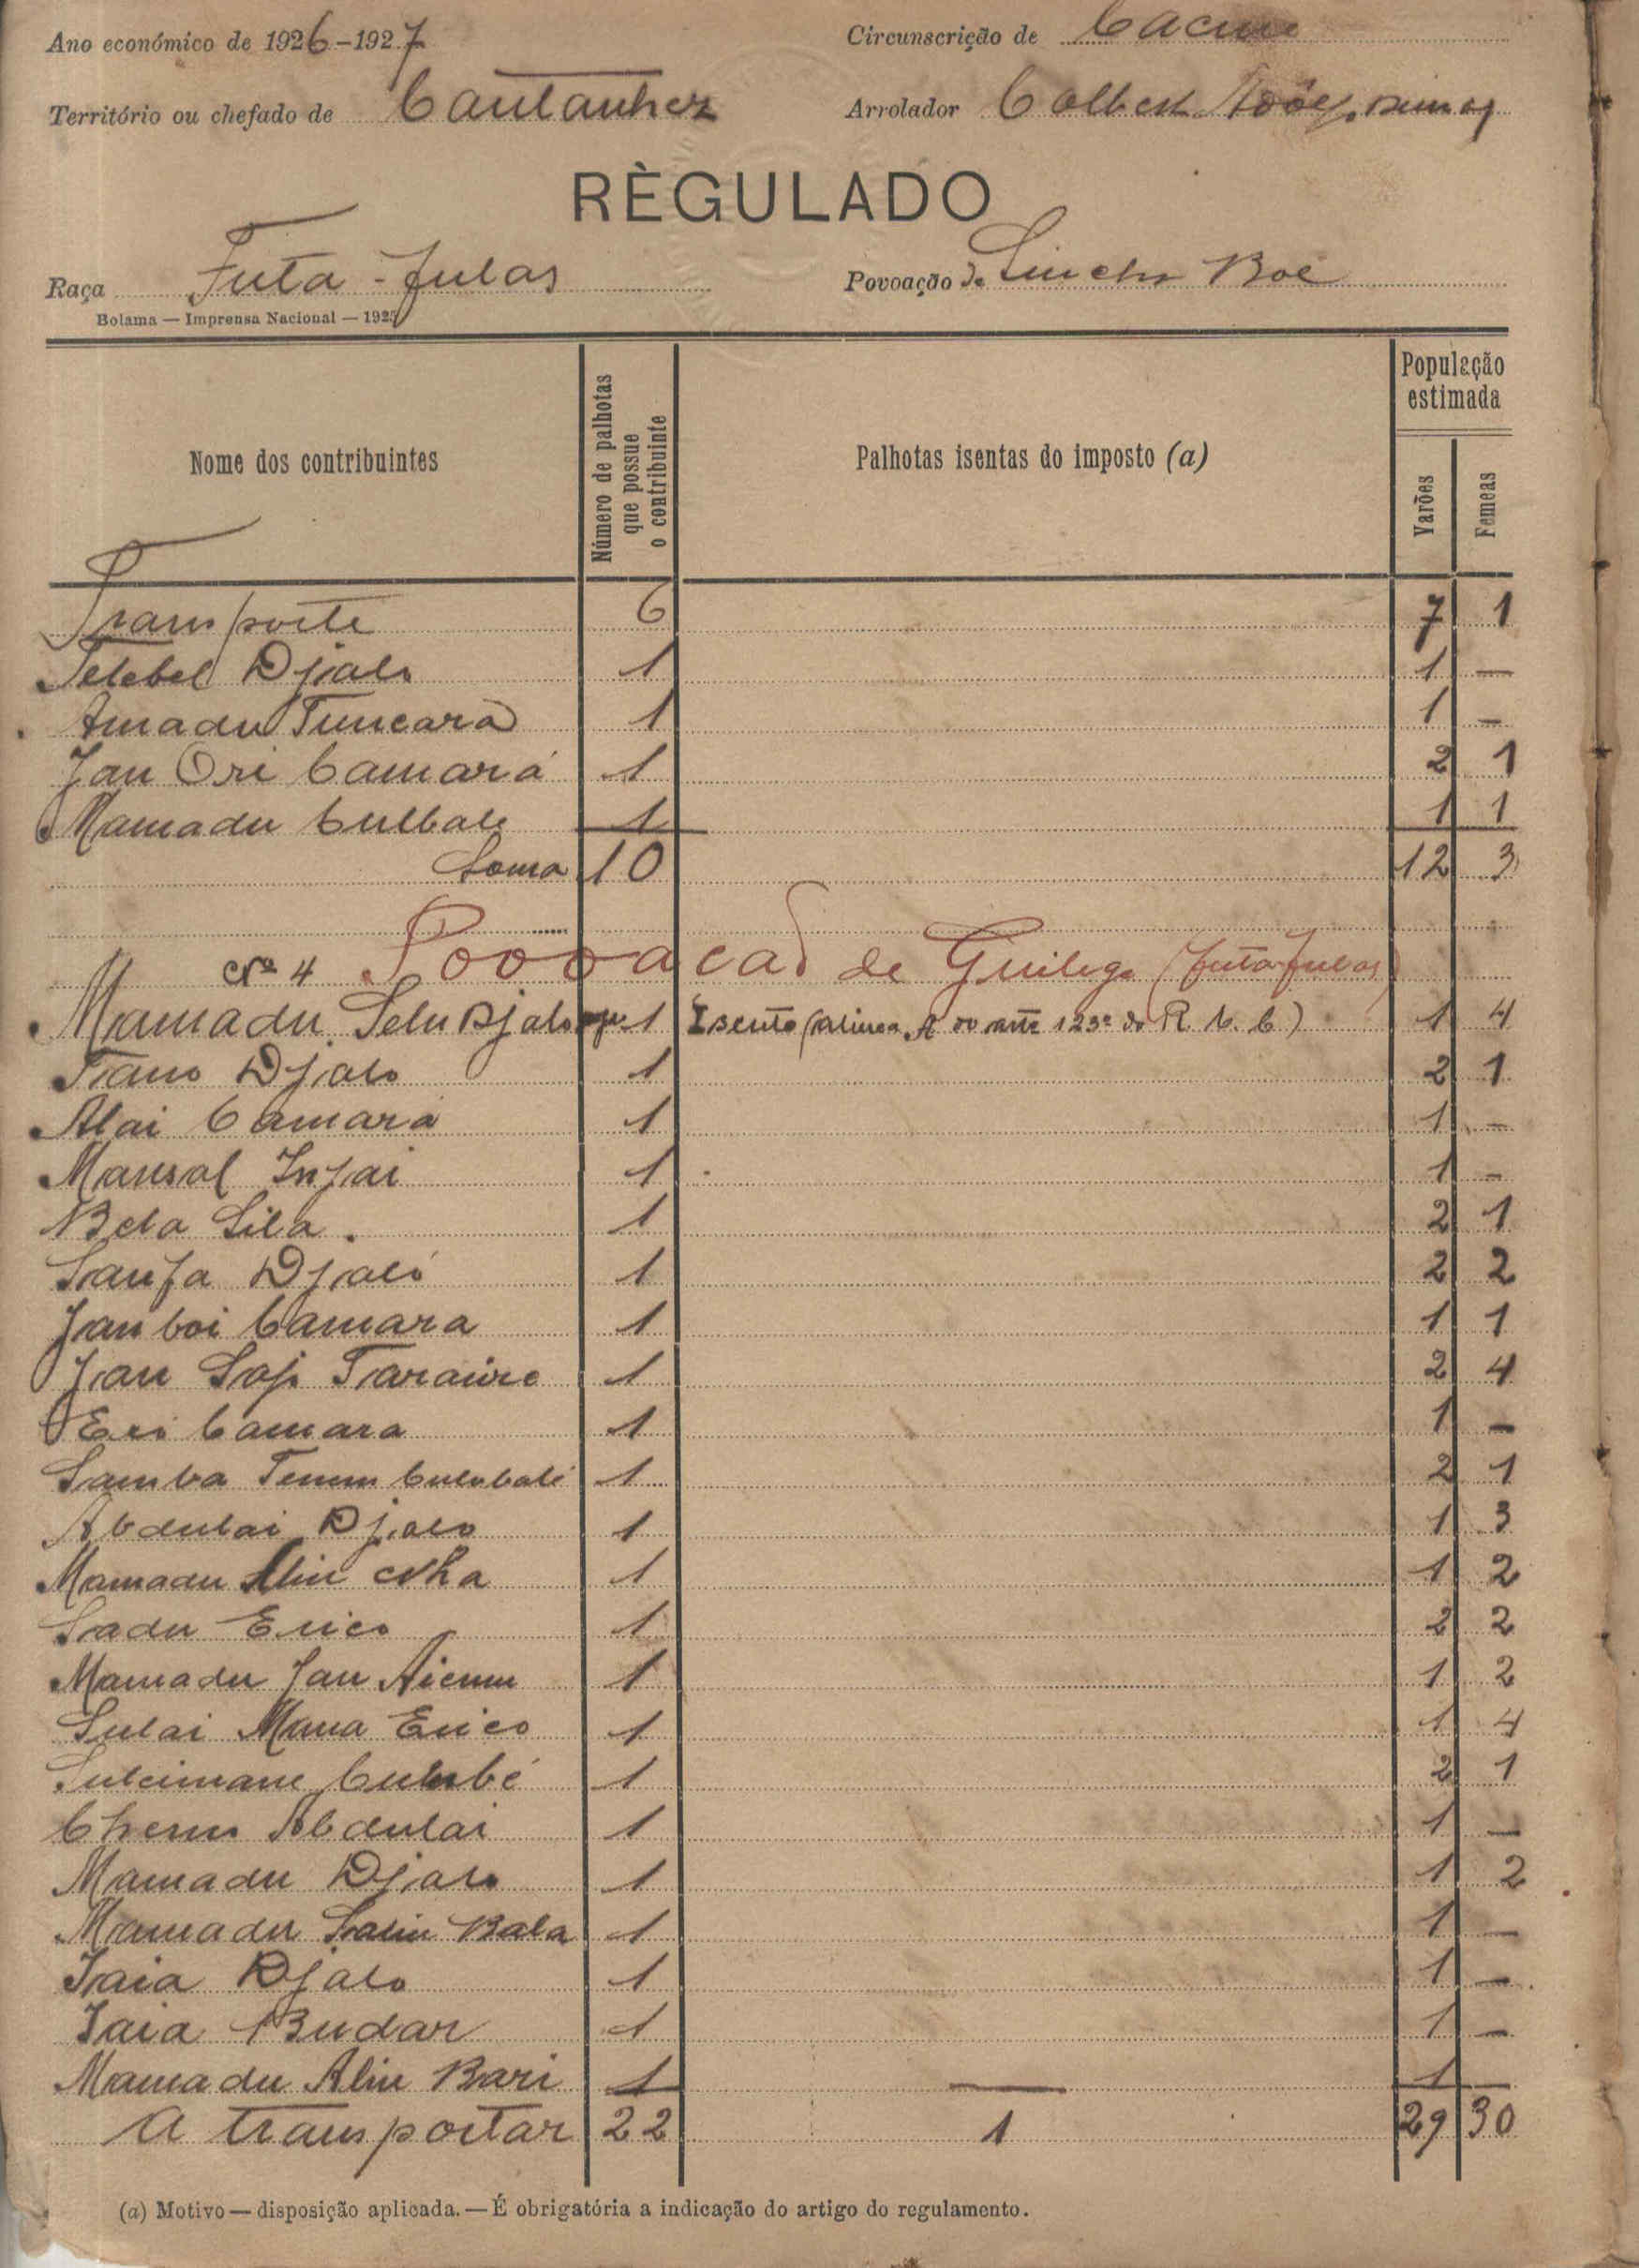 Ano económico de 1926-1927 Circunscrição de Cacine
Território ou chefado de Cantanhez Arrolador
RÈGULADO
Raça Futa-fulas Povoação de Sincho Boé
Bolama — Imprensa Nacional — 1925
Nome dos contribuintes Número de palhotas que possue o contribuinte Palhotas isentas do imposto (a) População estimada
Varões Femeas
Transporte 6 7 1
Telebel Djalo 1 1 —
Amadu Tuncará 1 1 —
Jan Ori Camará 1 2 1
Mamadu Culbale 1 1 1
Soma 10 12 3
Nº 4 Povoacão de Guilege (futa-fulas)
Mamadu Selu Djalo 1 Isento (alinea A do artº 123º do R. C. C.) 1 4
Tiano Djalo 1 2 1
Alai Camara 1 1 —
Mansal Injai 1 1 —
Bela Sila 1 2 1
Saufa Djaló 1 2 2
Jan boi Camara 1 1 1
Jan Saji Taraure 1 2 4
Eri Camara 1 1 —
Samba Tenem Culubalé 1 2 1
Abdulai Djalo 1 1 3
Mamadu Aliu Nha 1 1 2
Sadu Erico 1 2 2
Mamadu Jan 1 1 2
Sulai Mana Erico 1 1 4
Suleimane Culubé 1 2 1
Cherno Abdulai 1 1 —
Mamadu Djalo 1 1 2
Mamadu Saliu Bala 1 1 —
Iaia Djalo 1 1 —
Iaia Budar 1 1 —
Mamadu Aliu Bari 1 1 —
A transportar 22 1 29 30
(a) Motivo — disposição aplicada. — É obrigatória a indicação do artigo do regulamento.